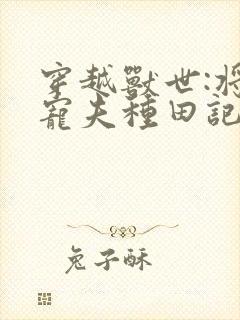 穿越獸世:將
寵夫種田記
兔子酥